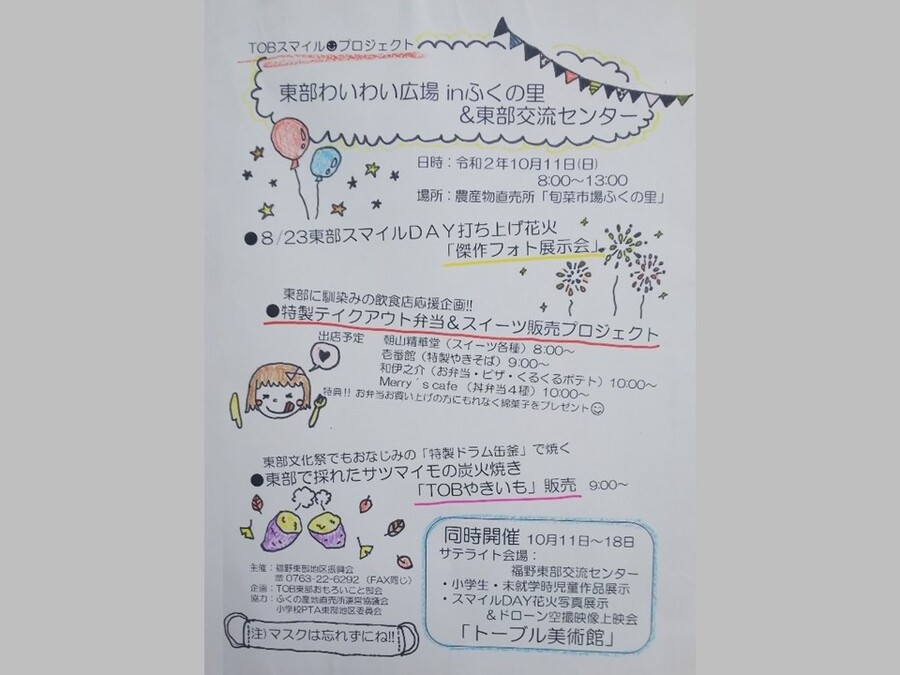 TOBスマイル☻プロジェクト
東部わいわい広場 inふくの里
&東部交流センター
日時：令和2年10月11日(日)
8:00～13:00
場所：農産物直売所「旬菜市場ふくの里」
●8/23東部スマイルDAY打ち上げ花火
「傑作フォト展示会」
東部に馴染みの飲食店応援企画!!
●特製テイクアウト弁当&スイーツ販売プロジェクト
出店予定 朝山精華堂（スイーツ各種）8:00～
壱番館（特製やきそば）9:00～
和伊之介（お弁当・ピザ・くるくるポテト）10:00～
Merry´s cafe（丼弁当4種）10:00～
特典!! お弁当お買い上げの方にもれなく綿菓子をプレゼント☺
東部文化祭でもおなじみの「特製ドラム缶釜」で焼く
●東部で採れたサツマイモの炭火焼き
「TOBやきいも」販売 9:00～
同時開催 10月11日～18日
サテライト会場：
福野東部交流センター
・小学生・未就学時児童作品展示
・スマイルDAY花火写真展示
&ドローン空撮映像上映会
「トーブル美術館」
主催：福野東部地区振興会
☎ 0763-22-6292（FAX同じ）
企画：TOB東部おもろいこと部会
協力：ふくの産地直売所運営協議会
小学校PTA東部地区委員会
注)マスクは忘れずにね!!